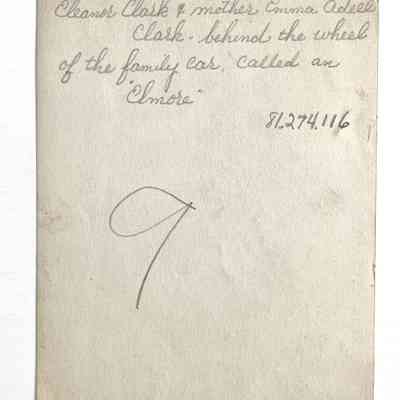 Eleanor Clark & mother Emma Adele
Clark - behind the wheel
of the family car, called an
"Elmore"
81.274.116
9